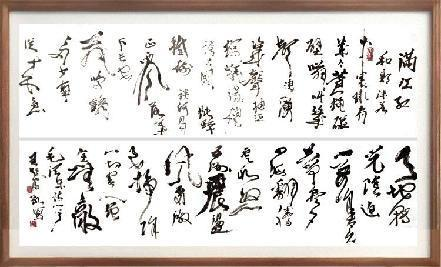 满江红
和郭沫若
小小寰球有
几个苍蝇碰
壁嗡嗡叫几
声凄厉
几声抽泣
蚂蚁缘槐
夸大国蚍蜉
撼树谈何易
正西风落叶
下长安
飞鸣镝
多少事
从来急
天地转
光阴迫
一万年太久
只争朝夕
四海翻腾
云水怒
五洲震荡
风雷激
要扫除
一切害人虫
全无敌
毛泽东词